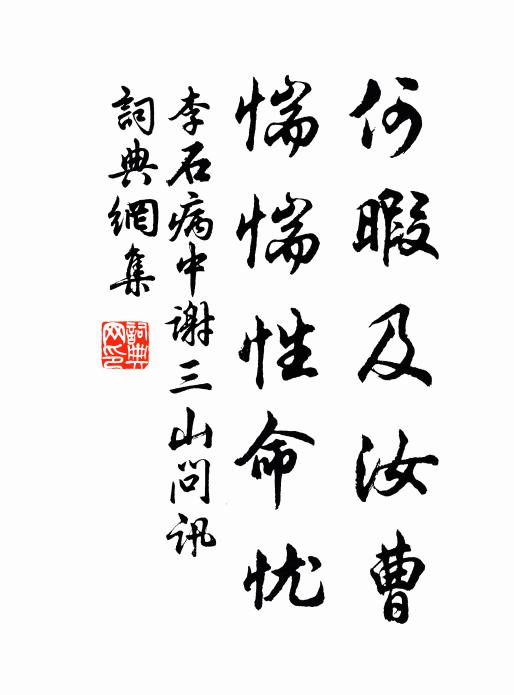 何暇及汝曹
惴惴性命忧
李石病中谢三山问讯
詞典網集
詞典网印